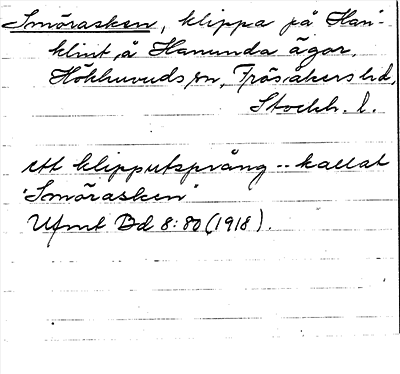 Smörasken, klippa på Han-
klint å Hanunda ägor,
Hökhuvuds sn, Frösåkers hd,
Stockh. l.
ett klipputsprång -- kallat
"Smörasken"
Ufmt Bd 8:80 (1918).